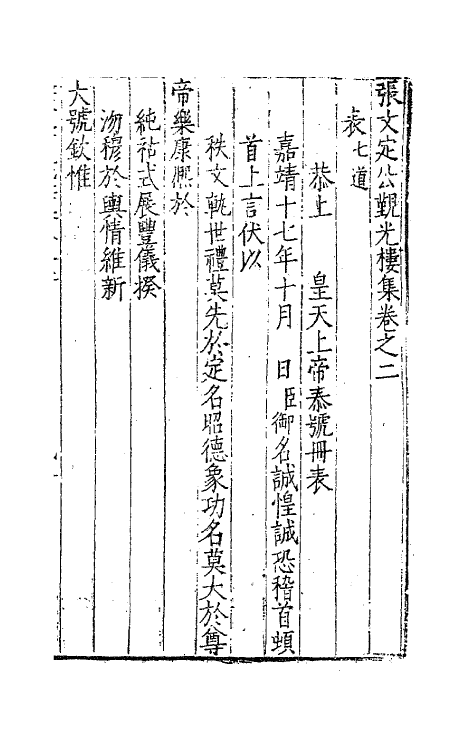 張文定公覲光樓集卷之二
表七道
恭上　皇天上帝泰號冊表
嘉靖十七年十月　日臣御名誠惶誠恐稽首頓
首上言伏以
秩文軌世禮莫先於定名昭德象功名莫大於尊
帝樂康熈於
純祜式展豐儀揆
沕穆於輿情維新
大號欽惟